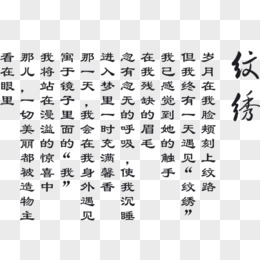 纹绣
岁月在我脸颊刻上纹路
但我终有一天遇见“纹绣”
我已感觉到她的触手
在我残缺的眉毛
忽有忽无的呼吸，使我沉睡
进入梦里一时充满馨香
那一天，我会在我身外遇见
寓于镜子里面的“我”
我将站在漫溢的惊喜中
那儿，一切美丽都被造物主
看在眼里